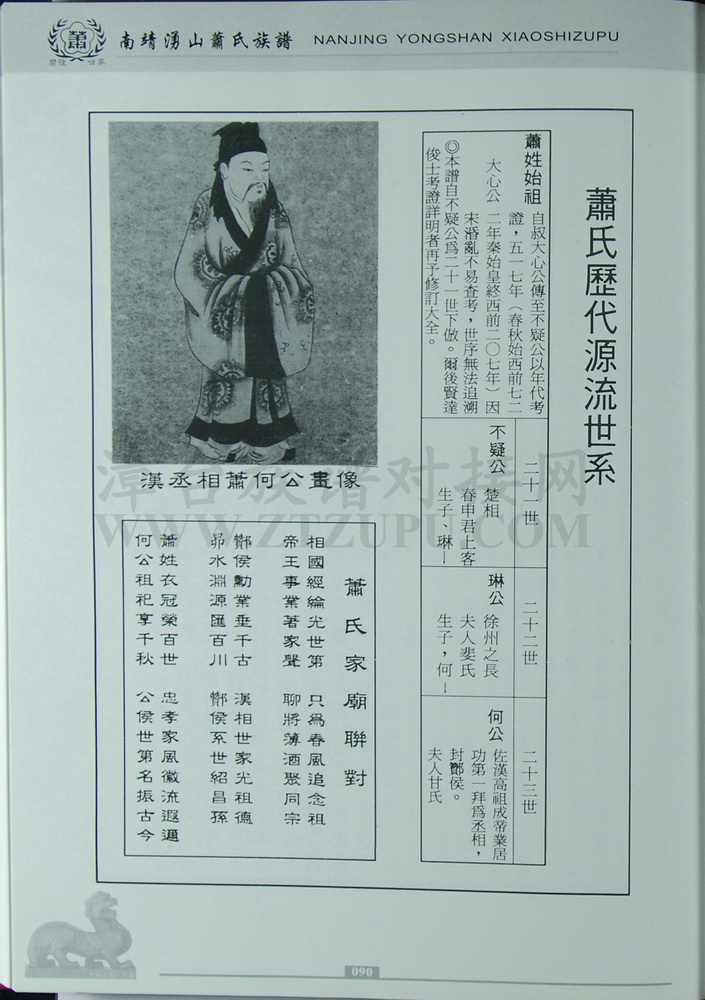 蕭
蘭陵 世家
南靖湧山蕭氏族譜 NANJING YONGSHAN XIAOSHIZUPU
蕭氏歷代源流世系
蕭姓始祖
大心公
自叔大心公傳至不疑公以年代考
證，五一七年（春秋始西前七二
二年秦始皇終西前二〇七年）因
宋湣亂不易查考，世序無法追溯
◎本譜自不疑公爲二十一世下倣。爾後賢達
俊士考證詳明者再予修訂大全。
二十一世
不疑公
楚相
春申君上客
生子、琳一
二十二世
琳公
徐州之長
夫人裴氏
生子，何一
二十三世
何公
佐漢高祖成帝業居
功第一拜爲丞相，
封酇侯。
夫人甘氏
漢丞相蕭何公畫像
蕭氏家廟聯對
相國經綸光世第 只爲春風追念祖
帝王事業著家聲 聊將薄酒聚同宗
酇侯勳業垂千古 漢相世家光祖德
泖水淵源匯百川 酇侯系世紹昌孫
蕭姓衣冠榮百世 忠孝家風徽流遐邇
何公祖祀享千秋 公侯世第名振古今
漳台族谱对接网
WWW.ZTZUPU.COM
090